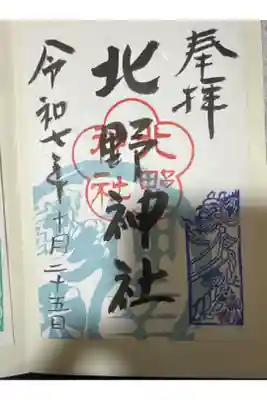 奉拝
北野神社
北野
神社
令和七年十月二十五日